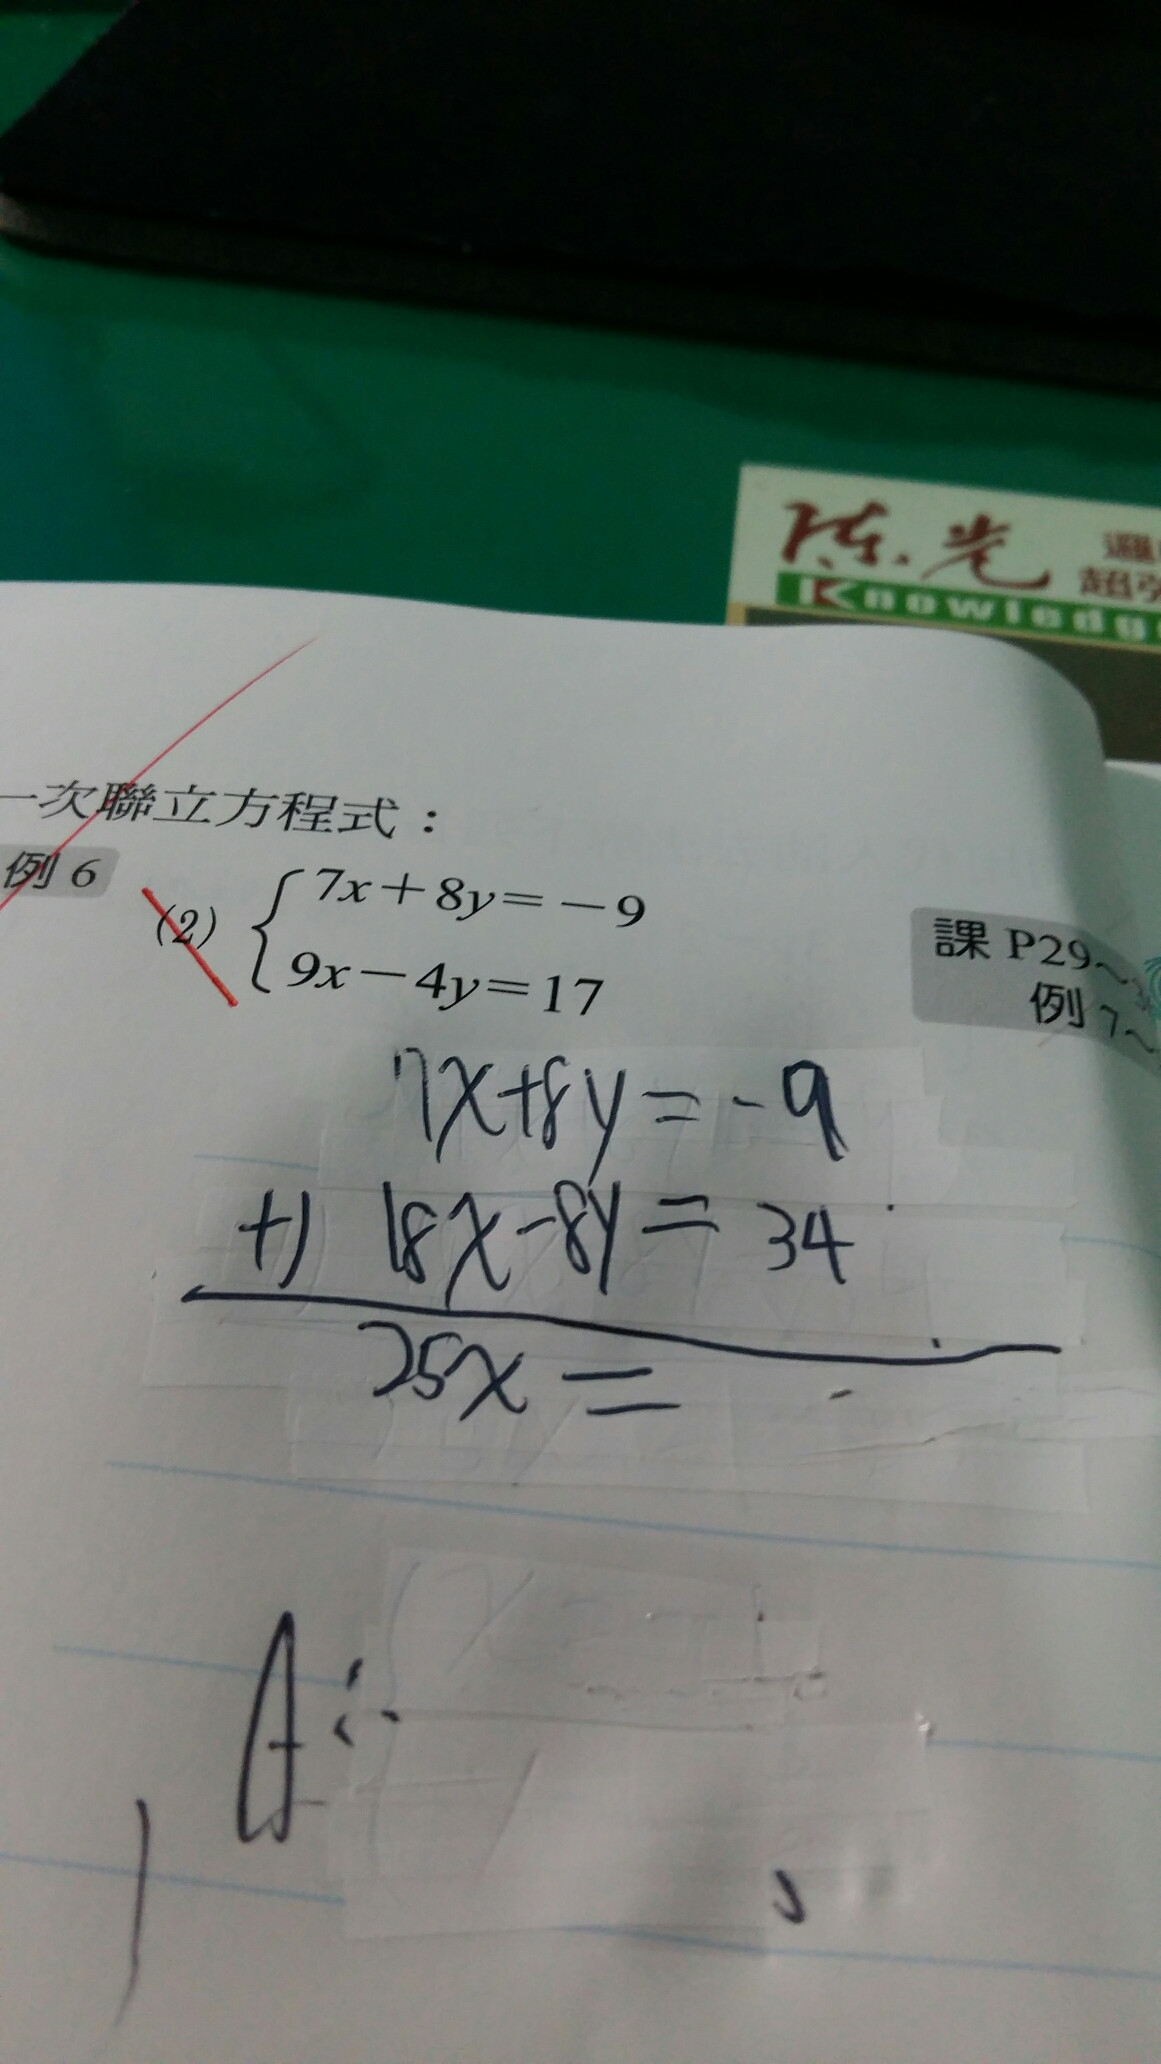 陳光
超強
Knowledge
一次聯立方程式：
例 6
(2) { 7x＋8y＝－9
9x－4y＝17
課 P29～
例 7～
7x+8y=-9
+) 18x-8y=34
25x=
A: